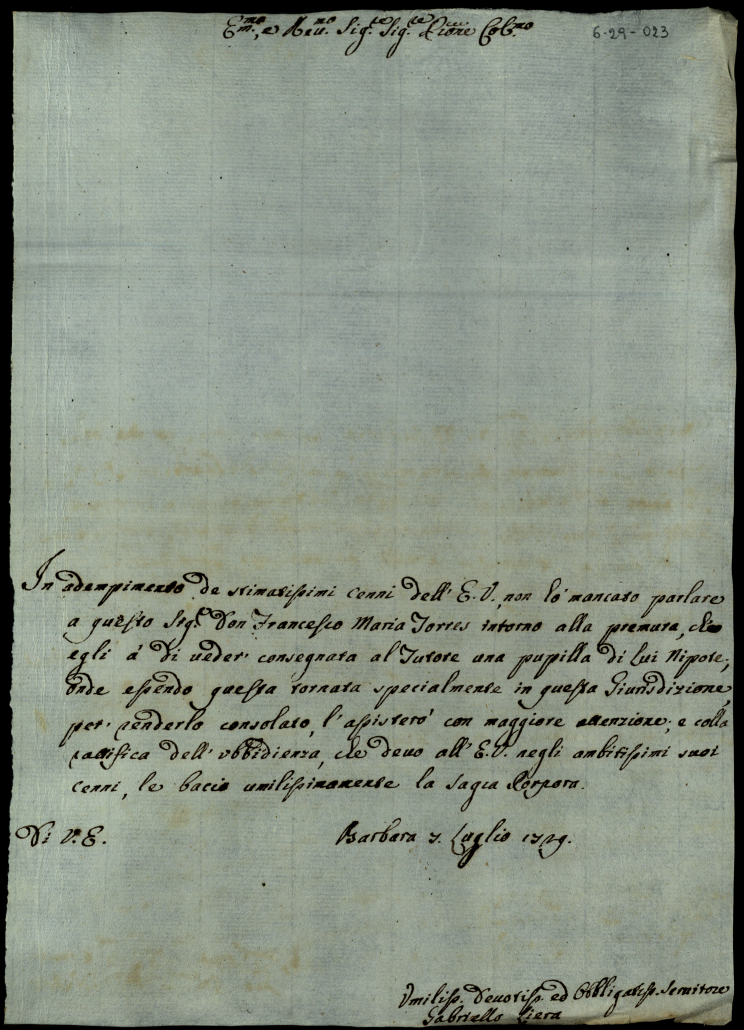 Em.mo, e Reu.mo Sig.re Sig.re P.rone Col.mo
6-29-023
In adempimento de stimatissimi cenni dell' E. V. non hò mancato parlare
a questo Sig.r Don Francesco Maria Torres intorno alla premura, che
egli à di ueder consegnata al Tutore una pupilla di lui Nipote;
onde essendo questa tornata specialmente in questa Giurisdizione,
per renderlo consolato, l'assisterò con maggiore attenzione; e colla
ratifica dell' vbbidienza, che deuo all' E. V. negli ambitissimi suoi
cenni, le bacio umilissimamente la sagra Porpora.
Di V. E.
Barbara 7. Luglio 1729.
Vmiliss. Deuotiss. ed Obbligatiss. Seruitore
Gabriello